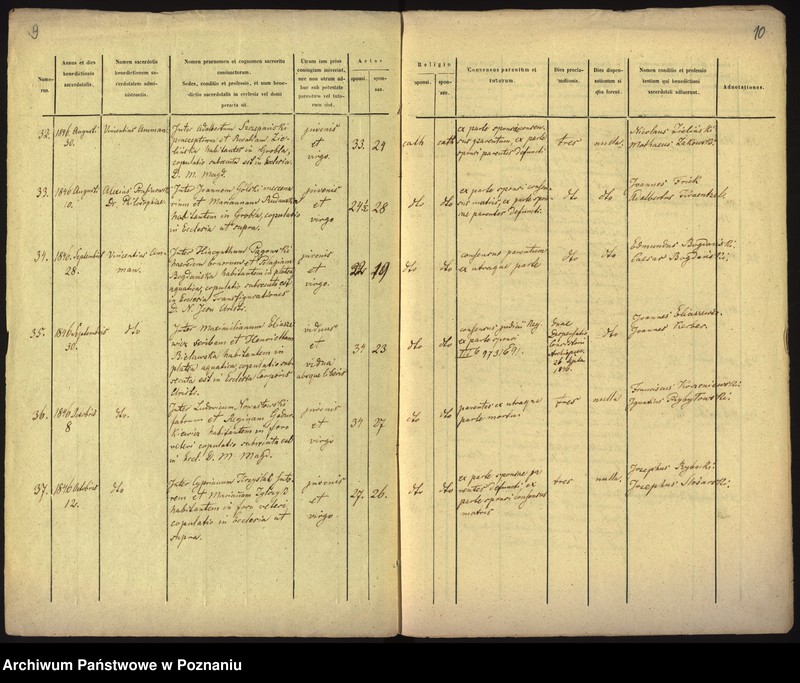 9
10
Nume-
rus.
Annus et dies
benedictionis
sacerdotalis.
Nomen sacerdotis
benedictionem sa-
cerdotalem admi-
nistrantis.
Nomen praenomen et cognomen sacrorito
coniunctorum.
Sedes, conditio et professio, et num bene-
dictio sacerdotalis in ecclesia vel domi
peracta sit.
Utrum iam prius
coniugium inierint,
nec non utrum ad-
huc sub potestate
parentum vel tuto-
rum sint.
Aetas
sponsi.
spon-
sae.
Religio
sponsi.
spon-
sae.
Consensus parentum et
tutorum.
Dies procla-
mationis.
Dies dispen-
sationum si
qua forent.
Nomen conditio et professio
testium qui benedictioni
sacerdotali adfuerunt.
Adnotationes.
32.
1846 Augusti
30.
Vincentius Amman
Inter Adalbertum Szczepański
praeceptorem et Rosaliam Zie-
lińska habitantes in Grobla,
copulatio subsecuta est in Ecclesia
B. M. Magd
juvenis
et
virgo.
33.
24
cath
cath
ex parte sponsi consen-
sus parentum, ex parte
sponsae parentes defuncti
tres
nulla.
Nicolaus Zieliński
Mathaeus Żakowski
33.
1846 Augusti
10.
Alexius Prusinowski
Dr. Philosophiae.
Inter Joannem Golski
et Mariannam
habitantem in Grobla, copulatio
in Ecclesia ut supra.
juvenis
et
virgo
24½
28
dto
dto
ex parte sponsi consen-
sus matris, ex parte spon-
sae parentes defuncti.
dto
dto
Joannes Frick
Adalbertus
34.
Septembris
28.
Vincentius Am-
man.
Inter Hiacynthum Pągowski
haeredem bonorum et Pelagiam
Bogdańska habitantem in platea
aquatica, copulatio subsecuta est
in Ecclesia Transfigurationis
D. N. Jesu Christi.
juvenis
et
virgo.
22
19
dto
dto
consensus parentum
ex utraque parte
dto
dto
Edmundus Bogdański:
Caesar Bogdański:
35.
1846 Septembris
30.
dto
Inter Maximilianum Eliasze-
wicz scribam et Henriettam
Bielawska habitantem in
platea aquatica, copulatio sub-
secuta est in Ecclesia Corporis
Christi.
viduus
et
vidua
absque liberis
34
23
dto
dto
consensus judicii Reg.
ex parte sponsi
III 6973/691.
dto
Joannes Eliaszewicz
Joannes Kerber.
36.
1846 Octobris
8
dto.
Inter Ludovicum
fabrum et Reginam
habitantem in foro
veteri copulatio subsecuta est
in Eccl. B. M. Magd.
juvenis
et
virgo
34
27
dto
dto
parentes ex utraque
parte mortui
tres
nulla
Franciscus
Ignatius Przybyłowski:
37.
1846 Octobris
12.
dto
Inter Cyprianum
et Mariannam
habitantem in foro veteri,
copulatio in ecclesia ut
supra.
juvenis
et
virgo
27.
26.
dto
dto
ex parte sponsae pa-
rentes defuncti, ex
parte sponsi consensus
matris
tres
nulla.
Josephus Rybicki:
Josephus
Archiwum Państwowe w Poznaniu